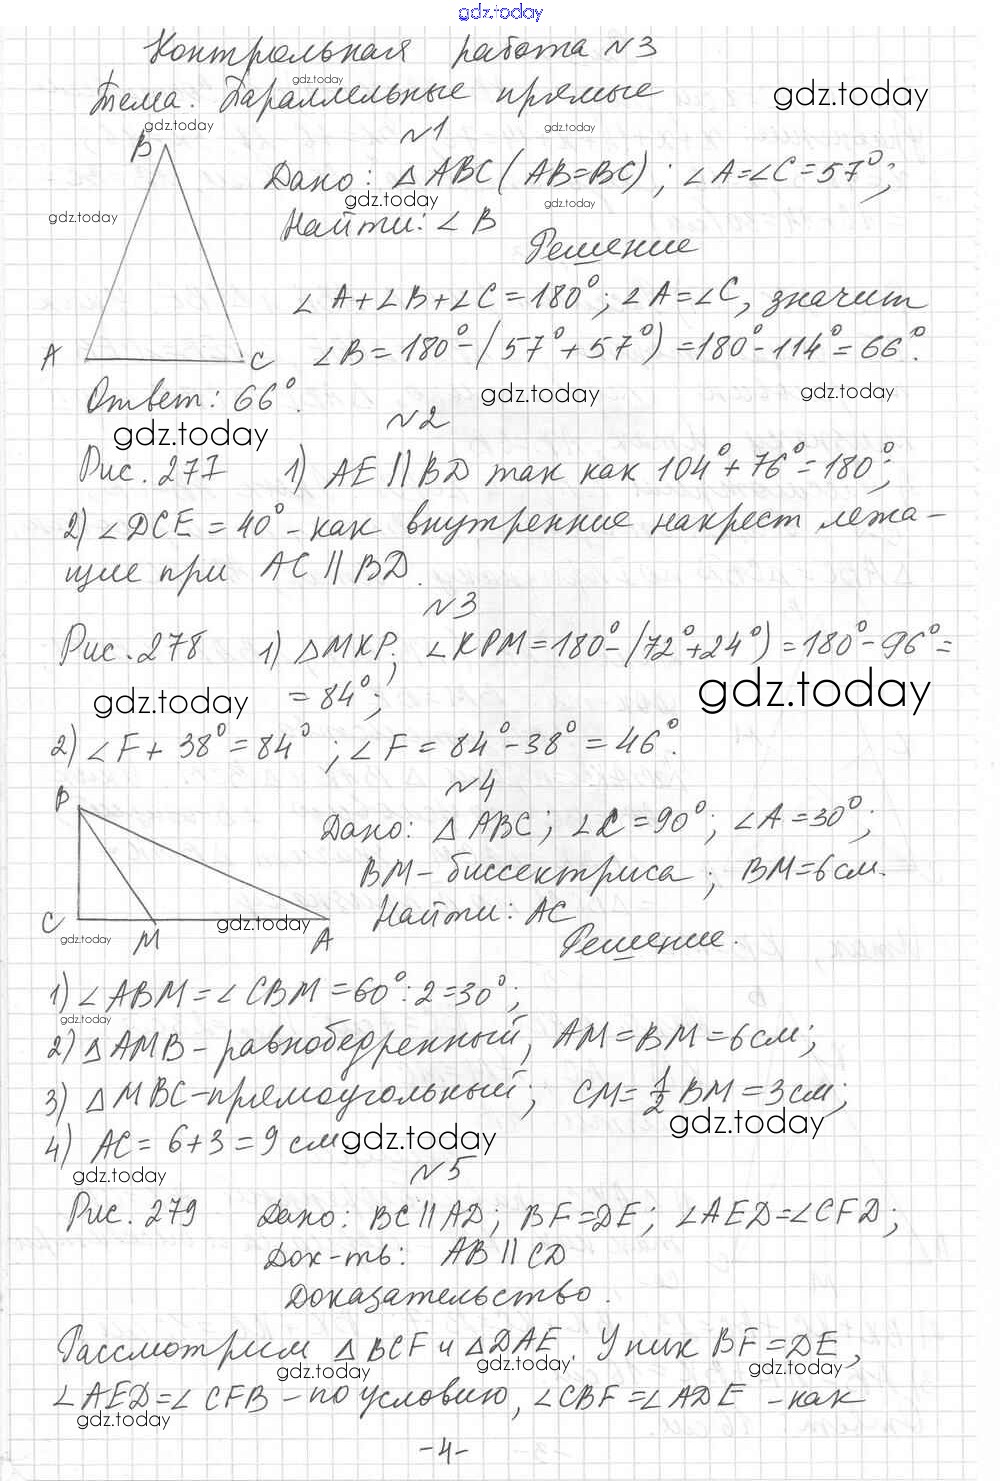 gdz.today
Контрольная работа №3
gdz.today
Тема. Параллельные прямые
gdz.today
gdz.today
№1
gdz.today
B
Дано: △ABC (AB=BC); ∠A=∠C=57°;
gdz.today
gdz.today
gdz.today
Найти: ∠B
Решение
∠A+∠B+∠C=180°; ∠A=∠C, значит
A
C
∠B=180°-(57°+57°)=180°-114°=66°.
Ответ: 66°.
gdz.today
gdz.today
№2
gdz.today
Рис. 277 1) AE||BD так как 104°+76°=180°;
2) ∠DCE=40°-как внутренние накрест лежа-
щие при AC||BD.
№3
Рис. 278 1) △MKP; ∠KPM=180°-(72°+24°)=180°-96°=
=84°;
gdz.today
gdz.today
2) ∠F+38°=84°; ∠F=84°-38°=46°.
№4
B
Дано: △ABC; ∠C=90°; ∠A=30°;
BM-биссектриса; BM=6см.
C
M
A
gdz.today
gdz.today
Найти: AC
Решение.
1) ∠ABM=∠CBM=60°:2=30°;
gdz.today
2) △AMB-равнобедренный, AM=BM=6см;
3) △MBC-прямоугольный; CM=½BM=3см;
gdz.today
4) AC=6+3=9см
gdz.today
gdz.today
№5
Рис. 279 Дано: BC||AD; BF=DE; ∠AED=∠CFD;
Док-ть: AB||CD
Доказательство.
Рассмотрим △BCF и △DAE. У них BF=DE,
gdz.today
gdz.today
gdz.today
∠AED=∠CFB-по условию, ∠CBF=∠ADE -как
gdz.today
-4-